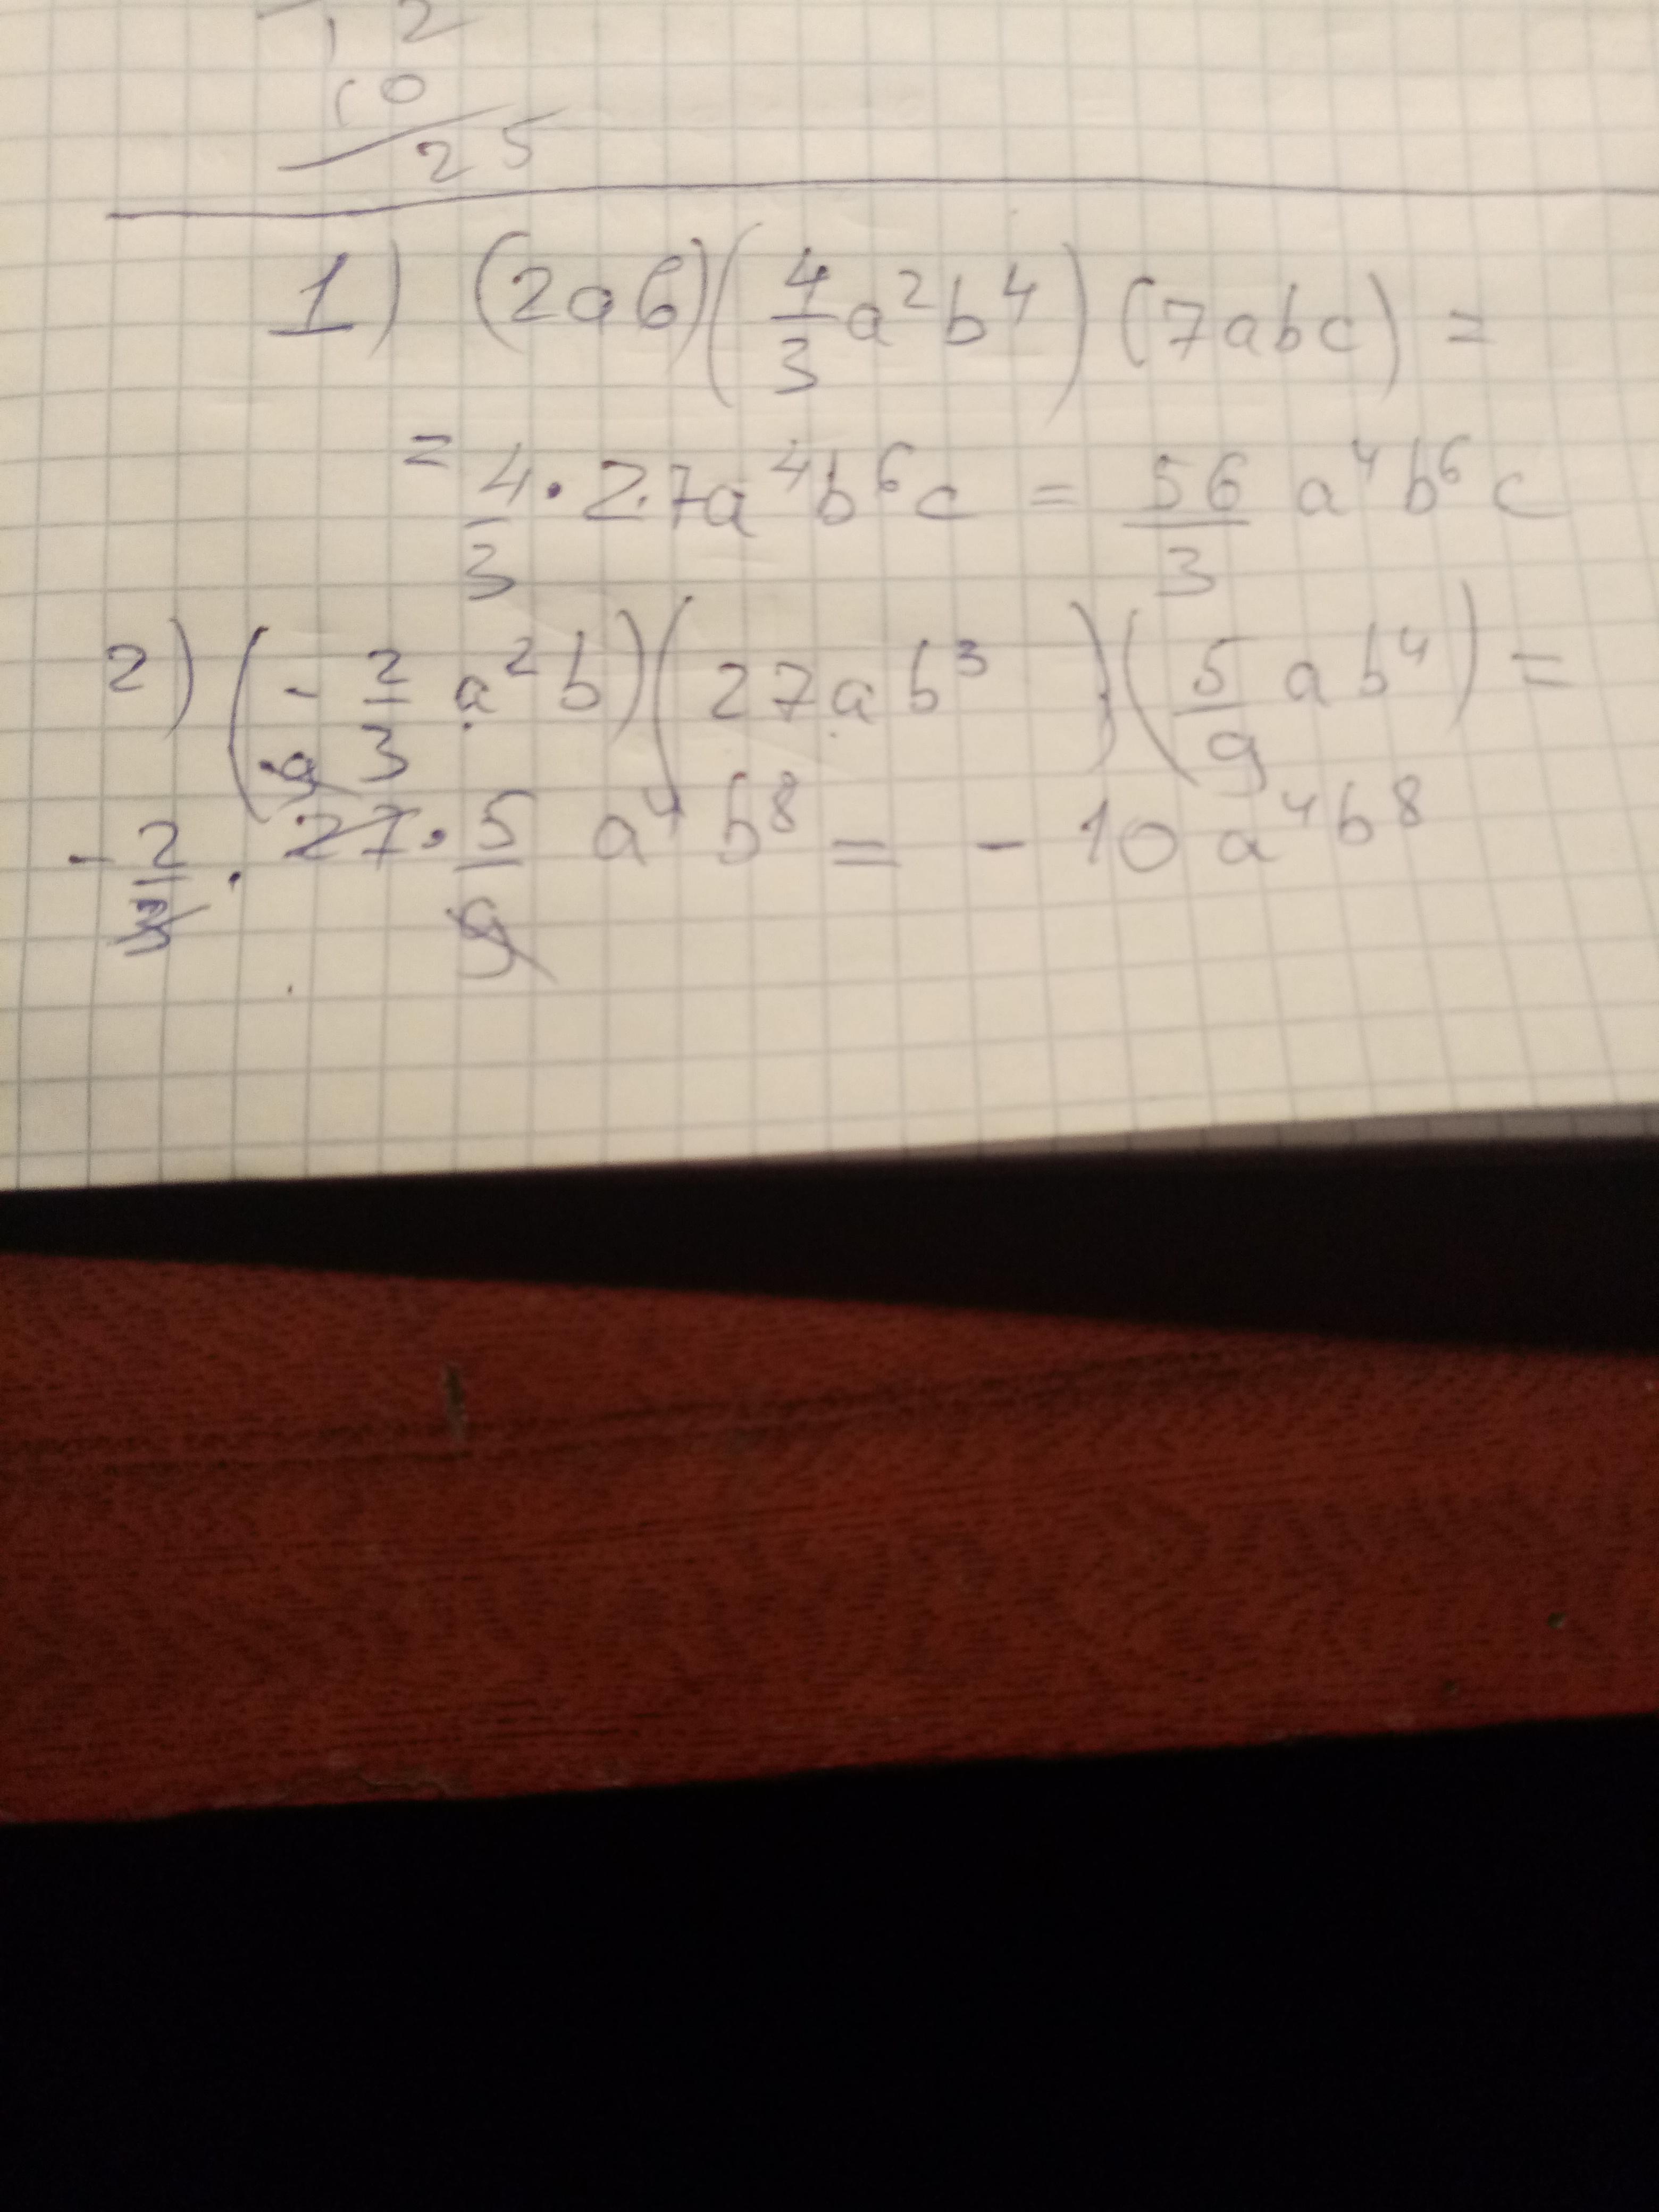 12
10
25
1) (2ab)(4/3 a²b⁴)(7abc) =
= 4/3 · 2·7a⁴b⁶c = 56/3 a⁴b⁶c
2) (- 2/3 a²b)(27ab³)(5/9 ab⁴) =
9
- 2/3 · 27 · 5/9 a⁴b⁸ = - 10a⁴b⁸